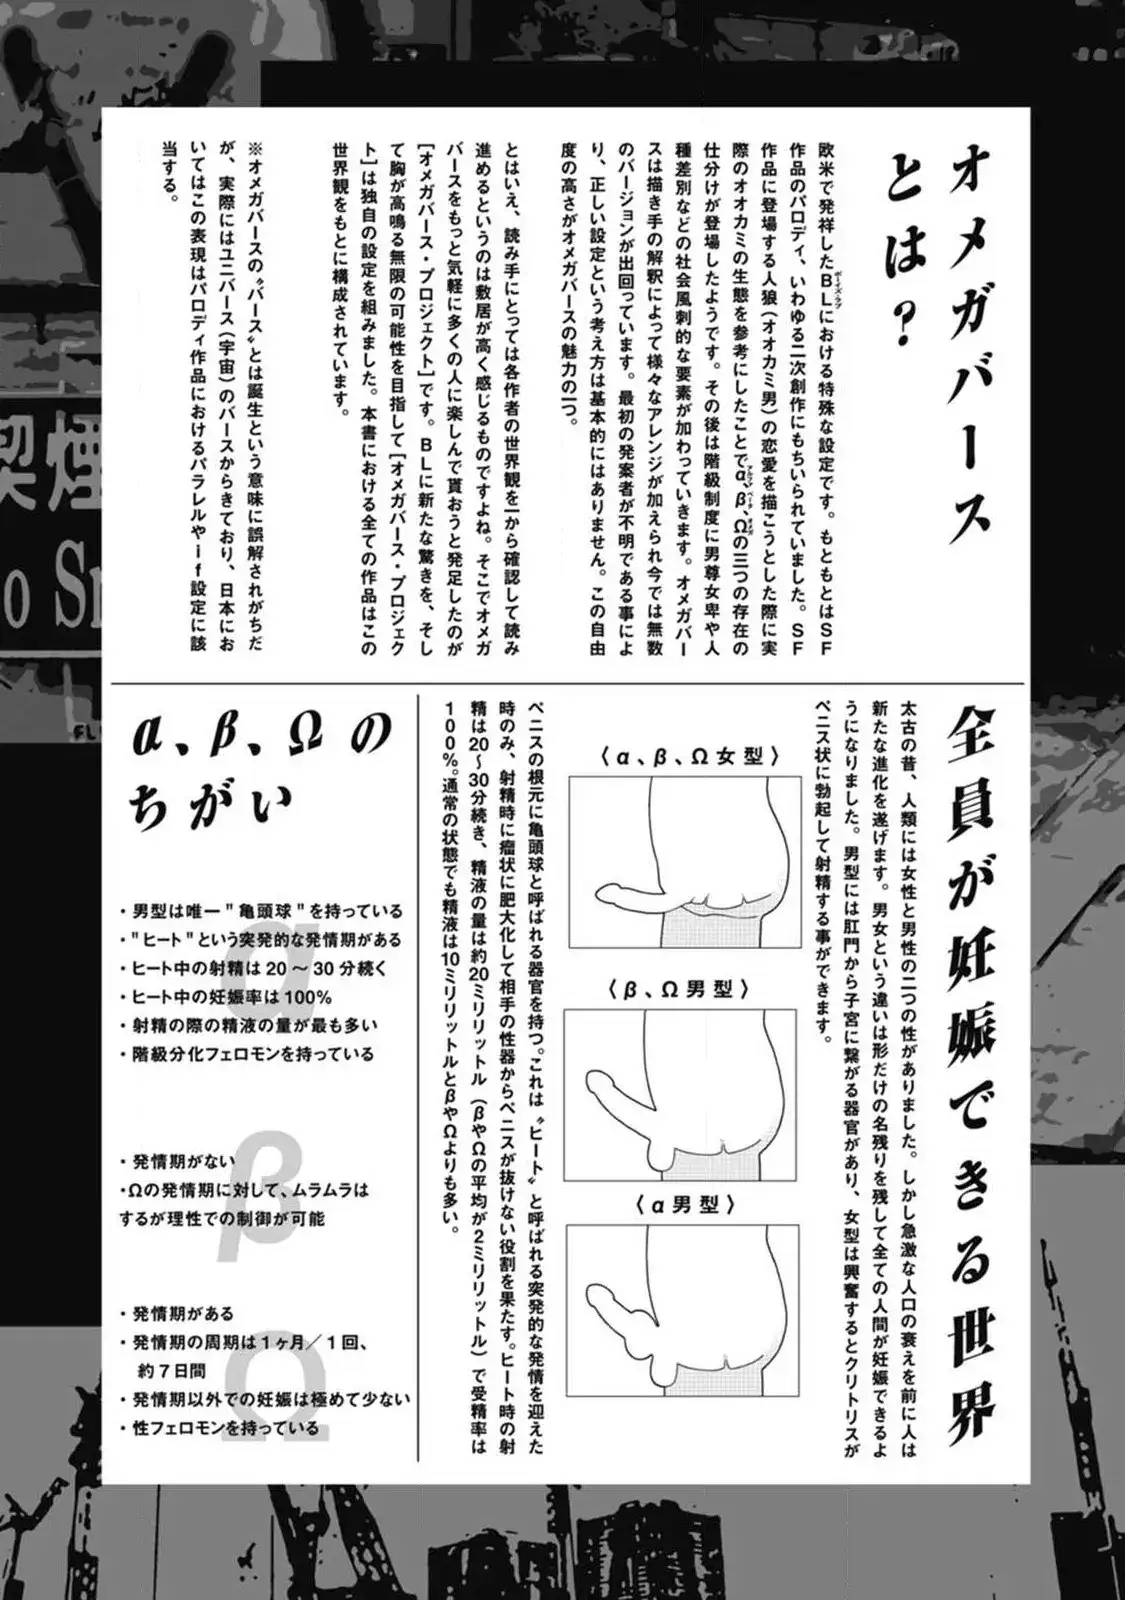 オメガバース
とは？
欧米で発祥したBLにおける特殊な設定です。もともとはSF
ボーイズ・ラブ
作品のパロディ、いわゆる二次創作にもちいられていました。SF
作品に登場する人狼（オオカミ男）の恋愛を描こうとした際に実
際のオオカミの生態を参考にしたことでα、β、Ωの三つの存在の
アルファ ベータ オメガ
仕分けが登場したようです。その後は階級制度に男尊女卑や人
種差別などの社会風刺的な要素が加わっていきます。オメガバー
スは描き手の解釈によって様々なアレンジが加えられ今では無数
のバージョンが出回っています。最初の発案者が不明である事によ
り、正しい設定という考え方は基本的にはありません。この自由
度の高さがオメガバースの魅力の一つ。
とはいえ、読み手にとっては各作者の世界観を一から確認して読み
進めるというのは敷居が高く感じるものですよね。そこでオメガ
バースをもっと気軽に多くの人に楽しんで貰おうと発足したのが
［オメガバース・プロジェクト］です。BLに新たな驚きを、そし
て胸が高鳴る無限の可能性を目指して［オメガバース・プロジェク
ト］は独自の設定を組みました。本書における全ての作品はこの
世界観をもとに構成されています。
※オメガバースの〝バース〟とは誕生という意味に誤解されがちだ
が、実際にはユニバース（宇宙）のバースからきており、日本にお
いてはこの表現はパロディ作品におけるパラレルやif設定に該
当する。
全員が妊娠できる世界
太古の昔、人類には女性と男性の二つの性がありました。しかし急激な人口の衰えを前に人は
新たな進化を遂げます。男女という違いは形だけの名残りを残して全ての人間が妊娠できるよ
うになりました。男型には肛門から子宮に繋がる器官があり、女型は興奮するとクリトリスが
ペニス状に勃起して射精する事ができます。
〈α、β、Ω女型〉
〈β、Ω男型〉
〈α男型〉
ペニスの根元に亀頭球と呼ばれる器官を持つ。これは〝ヒート〟と呼ばれる突発的な発情を迎えた
時のみ、射精時に瘤状に肥大化して相手の性器からペニスが抜けない役割を果たす。ヒート時の射
精は20〜30分続き、精液の量は約20ミリリットル（βやΩの平均が2ミリリットル）で受精率は
100%。通常の状態でも精液は10ミリリットルとβやΩよりも多い。
α、β、Ωの
ちがい
α
・男型は唯一"亀頭球"を持っている
・"ヒート"という突発的な発情期がある
・ヒート中の射精は20〜30分続く
・ヒート中の妊娠率は100%
・射精の際の精液の量が最も多い
・階級分化フェロモンを持っている
β
・発情期がない
・Ωの発情期に対して、ムラムラは
するが理性での制御が可能
Ω
・発情期がある
・発情期の周期は1ヶ月／1回、
約7日間
・発情期以外での妊娠は極めて少ない
・性フェロモンを持っている
喫煙
o Sm